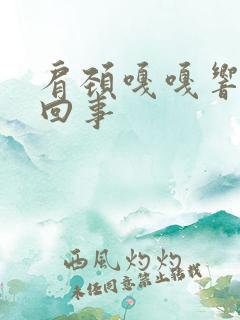 肩颈嘎嘎响
回事
西風灼灼
未经同意禁止转载